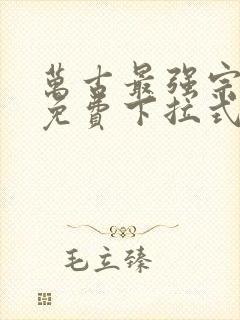 萬古最强宗
免費下拉式
毛立臻